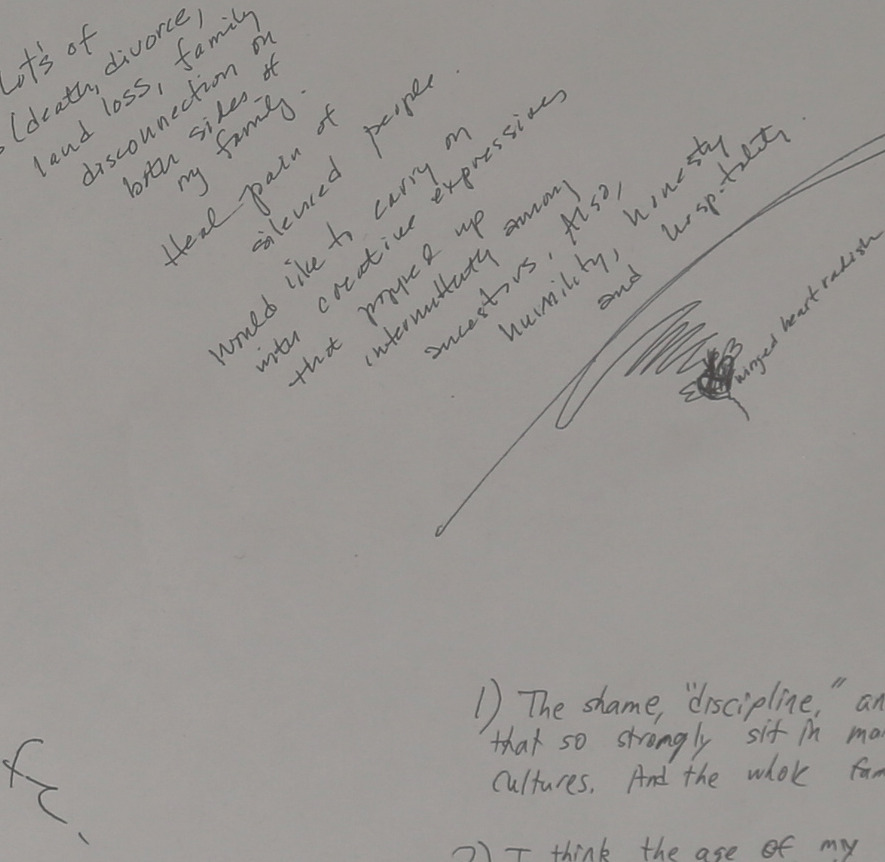 Lots of
(death, divorce,
land loss, family
disconnection on
both sides of
my family.
Heal pain of
silenced people.
Would like to carry on
with creative expressions
that popped up
intermittently among
ancestors. Also,
humility, honesty
and hospitality.
winged heart radish
1) The shame, "discipline," an
that so strongly sit in ma
cultures. And the whole fam
2) I think the age of my